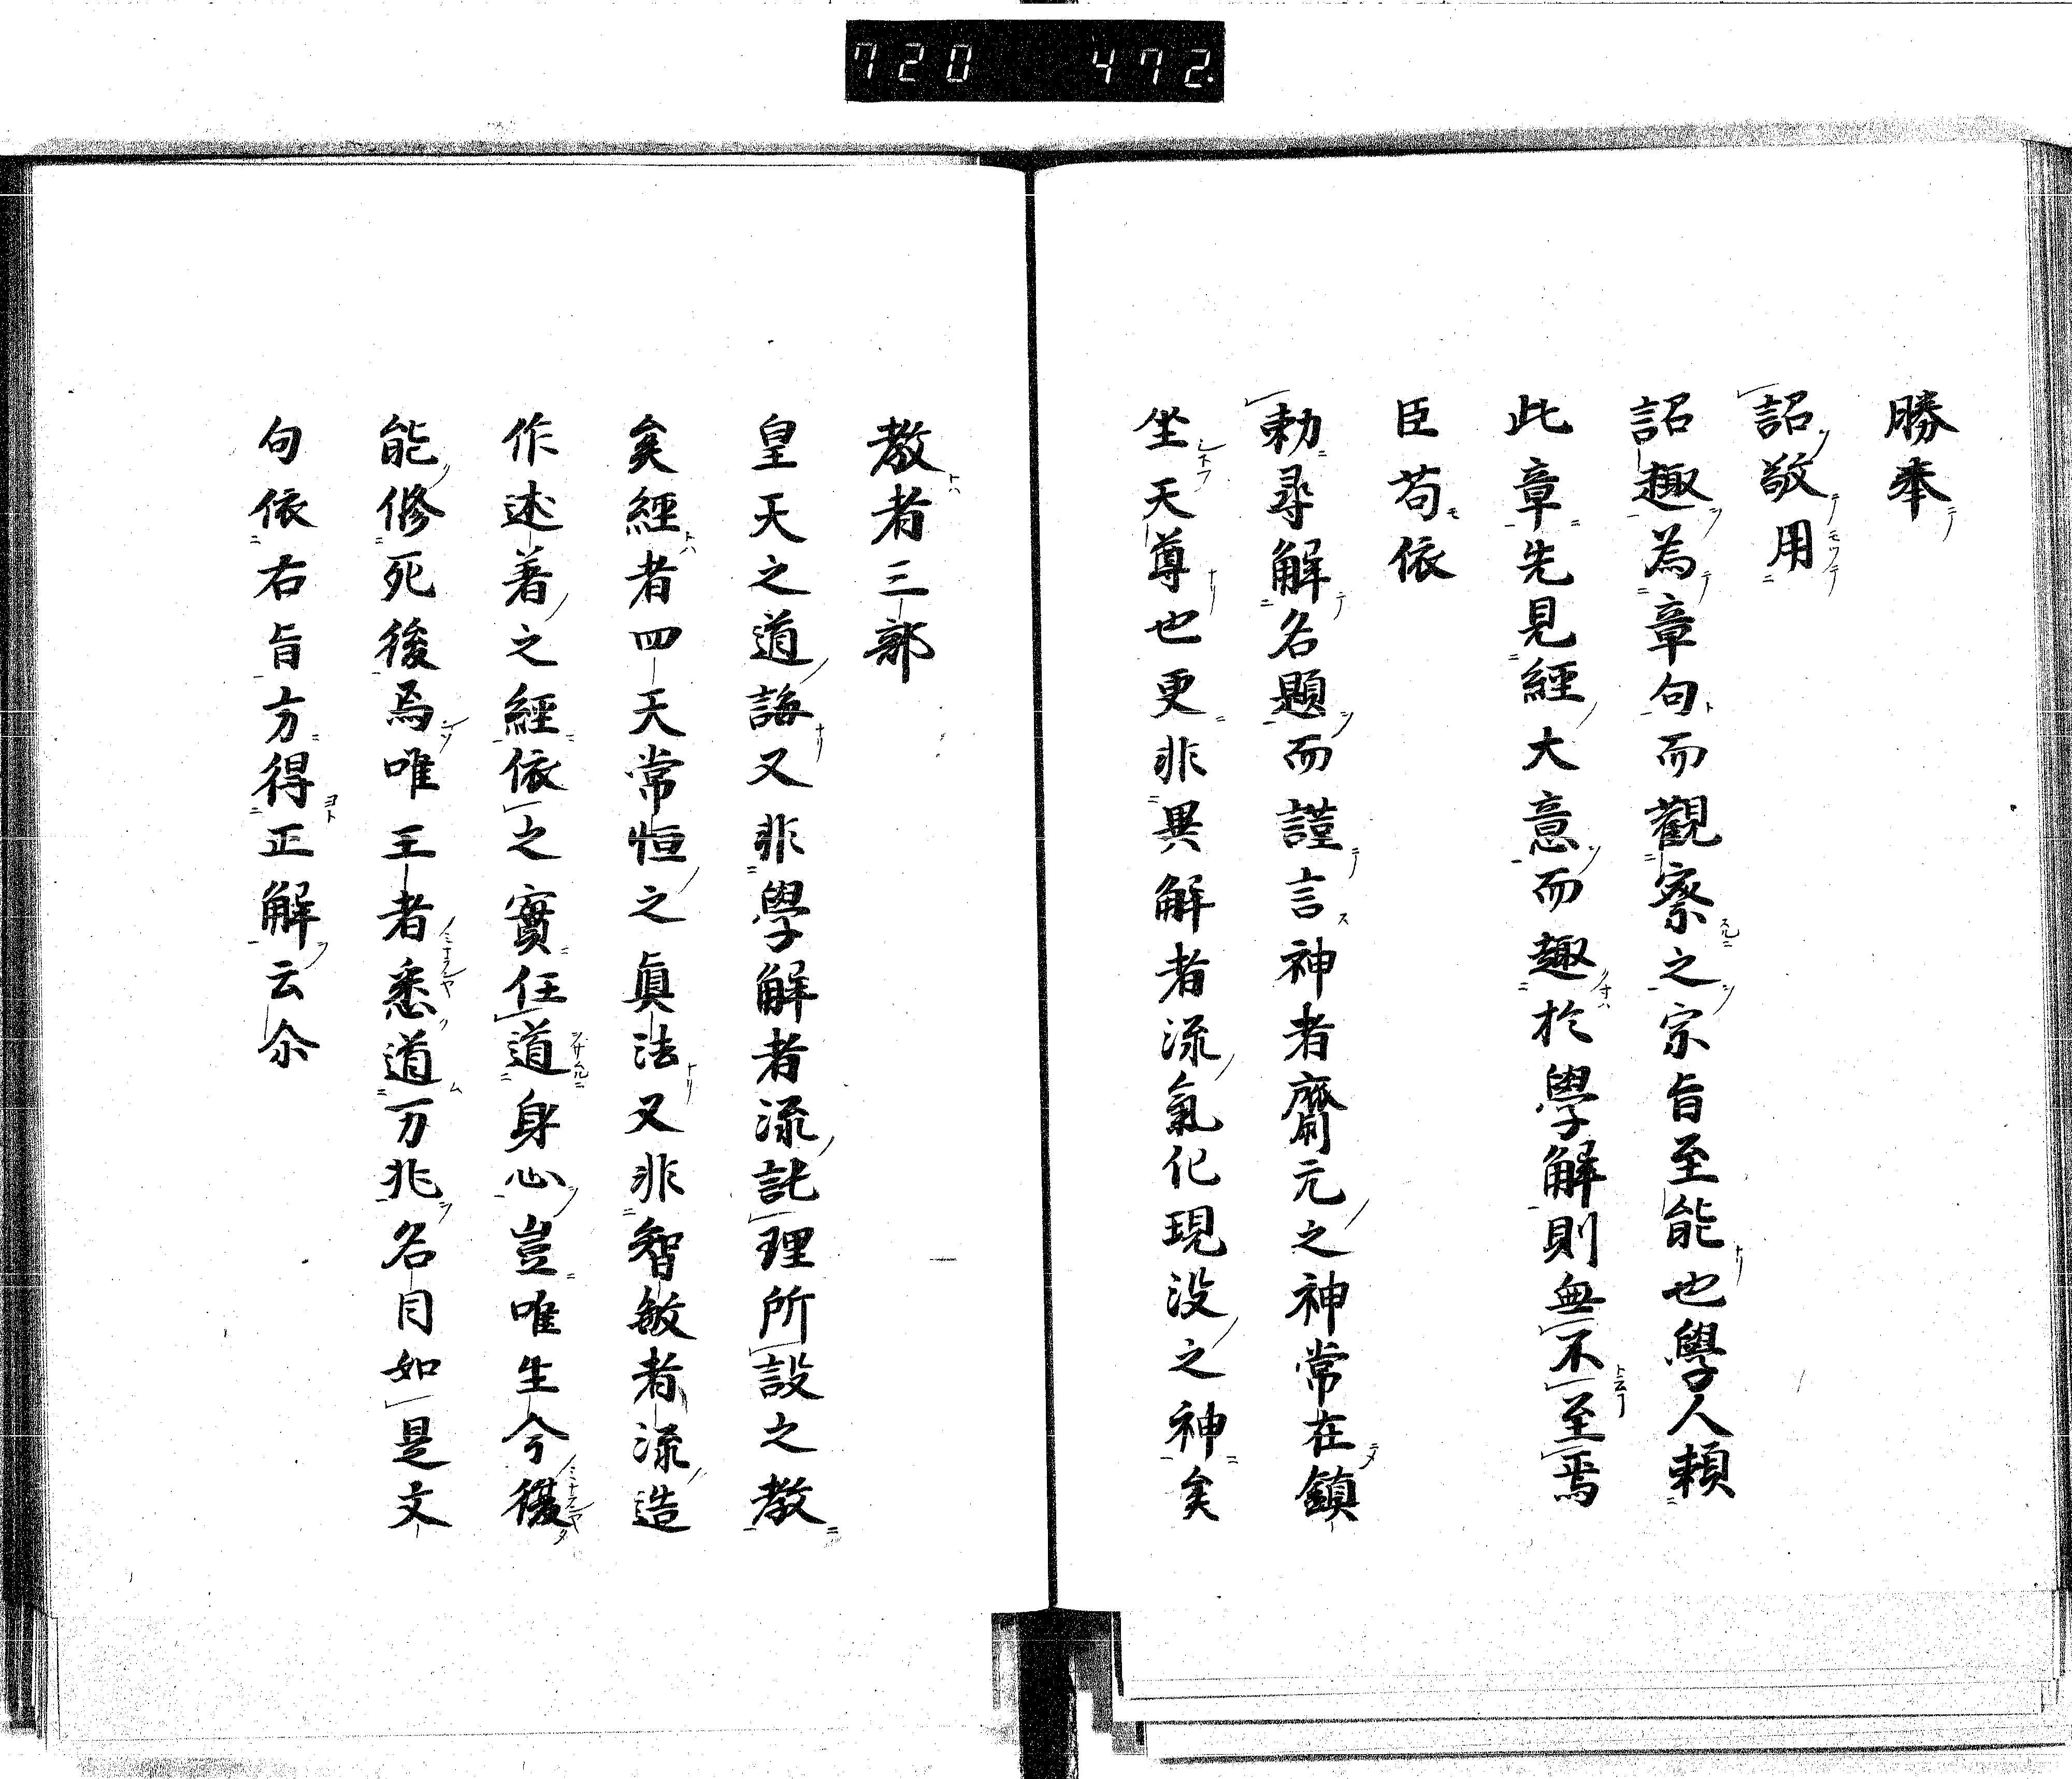 720 472.
勝奉
詔敬用
詔趣為章句而觀察之宗旨至能也學人頼
此章先見經大意而趣於學解則無不至焉
臣苟依
勅尋解名題而謹言神者齋元之神常在鎮
坐天尊也更非異解者流氣化現没之神矣
教者三部
皇天之道誨又非學解者流託理所設之教
矣經者四天常恒之眞法又非智敏者流造
作述著之經依之實任道身心豈唯生今
能修死後焉唯王者悉道万兆名目如是文
句依右旨方得正解云尒